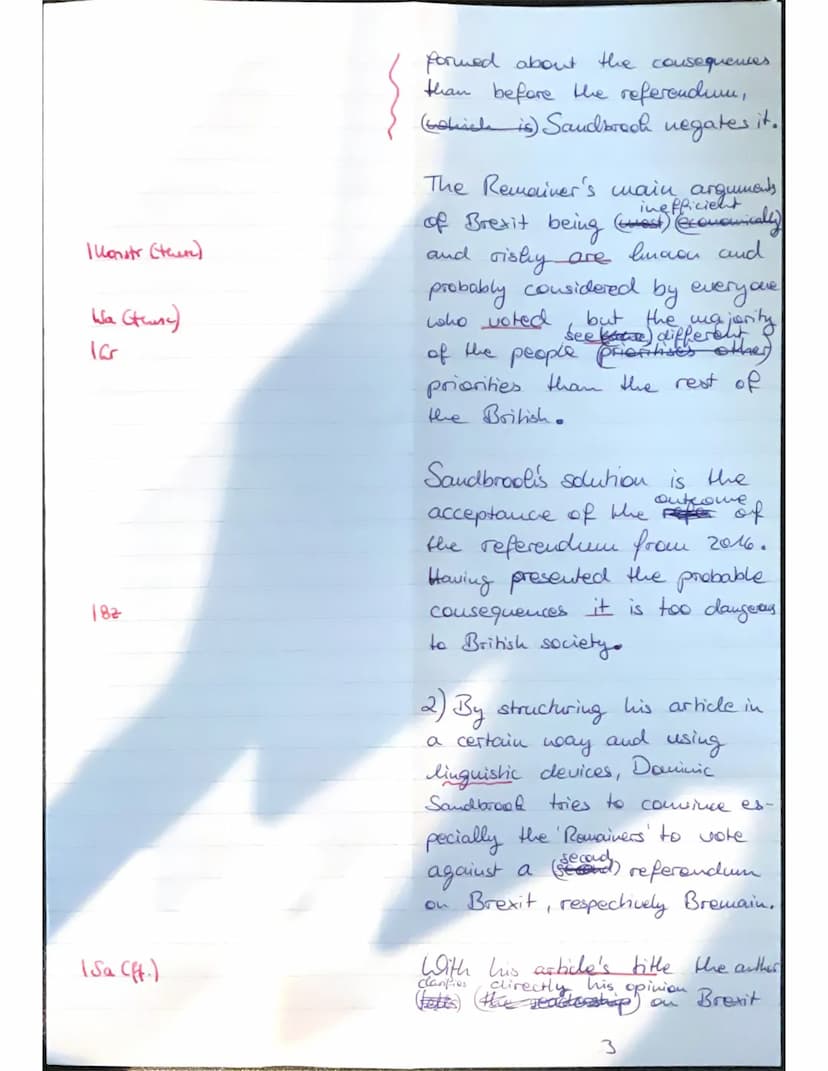 formed about the consequences
than before the referendum,
(which is) Sandbrook negates it.
The Remainer's main arguments
inefficient
of Brexit being (most) (economically)
|Konstr (them)
and risky are known and
probably considered by everyone
who voted, but the majority
see different
|Gr
of the people (prioritises other)
priorities than the rest of
the British.
Sandbrook's solution is the
outcome
acceptance of the of
the referendum from 2016.
Having presented the probable
|Bz
consequences it is too dangerous
to British society.
2) By structuring his article in
a certain way and using
linguistic devices, Dominic
Sandbrook tries to convince es-
pecially the 'Remainers' to vote
second
against a (second) referendum
on Brexit, respectively Bremain.
|Sa (ff.)
With his article's title the author
clarifies directly his opinion
(the readership) on Brexit
3